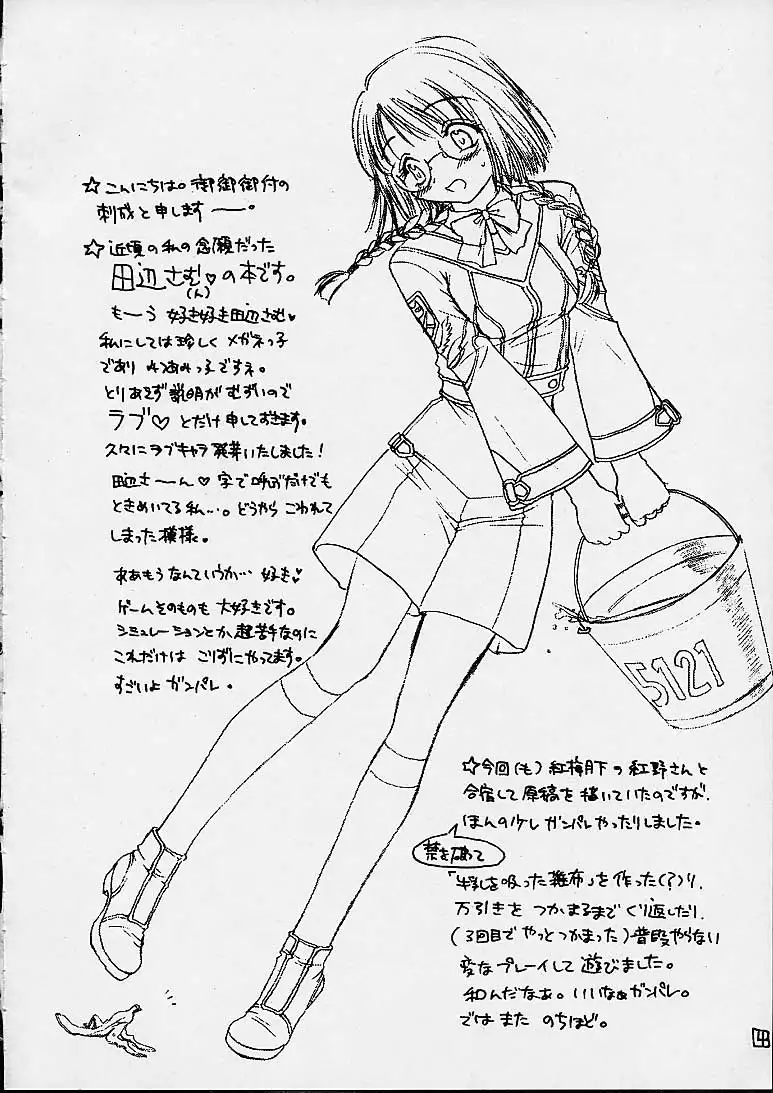 ☆こんにちは。御御御付の
刺成と申します――。
☆近頃の私の念願だった
田辺さむ♡の本です。
(ん)
もーう 好き好き田辺さむ♥
私にしては珍しくメガネっ子
であり みつあみっ子ですネ。
とりあえず説明がむずいので
ラブ♡とだけ申しておきます。
久々にラブキャラ発芽いたしました!
田辺さーん♡字で呼ぶだけでも
ときめいてる私…。どうやら こわれて
しまった模様。
ああもうなんていうか… 好き♥
ゲームそのものも 大好きです。
シミュレーションとか超苦手なのに
これだけは こりずにやってます。
すごいよ ガンパレ。
5121
☆今回(も)紅梅月下の紅野さんと
合宿して原稿を描いていたのですが、
ほんの少しガンパレやったりしました。
禁を破って
「牛乳を吸った雑布」を作った(?)り、
万引きを つかまるまで くり返したり、
(3回目でやっとつかまった)普段やらない
変なプレイして 遊びました。
和んだなぁ。いいなぁガンパレ。
では また のちほど。